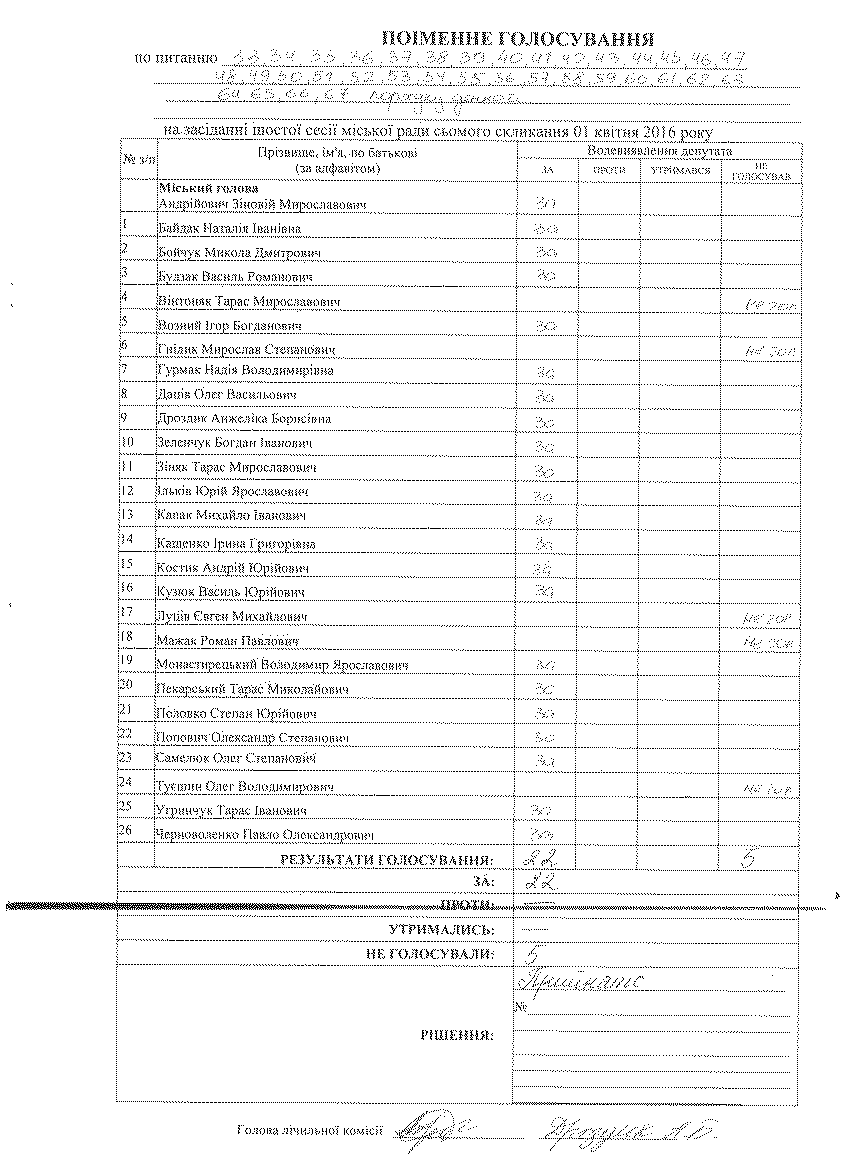 ПОІМЕННЕ ГОЛОСУВАННЯ
по питанню 33, 34, 35, 36, 37, 38, 39, 40, 41, 42, 43, 44, 45, 46, 47
48, 49, 50, 51, 52, 53, 54, 55, 56, 57, 58, 59, 60, 61, 62, 63
64, 65, 66, 67 порядку денного
на засіданні шостої сесії міської ради сьомого скликання 01 квітня 2016 року
№ з/п Прізвище, ім'я, по батькові (за алфавітом) Волевиявлення депутата
ЗА ПРОТИ УТРИМАВСЯ НЕ ГОЛОСУВАВ
Міський голова
Андрійович Зіновій Мирославович за
1 Байдак Наталія Іванівна за
2 Бойчук Микола Дмитрович за
3 Будзак Василь Романович за
4 Вінтоняк Тарас Мирославович не гол
5 Возний Ігор Богданович за
6 Гнідик Мирослав Степанович не гол
7 Гурмак Надія Володимирівна за
8 Даців Олег Васильович за
9 Дроздик Анжеліка Борисівна за
10 Зеленчук Богдан Іванович за
11 Зіняк Тарас Мирославович за
12 Ільків Юрій Ярославович за
13 Капак Михайло Іванович за
14 Кащенко Ірина Григорівна за
15 Костик Андрій Юрійович за
16 Кузюк Василь Юрійович за
17 Луців Євген Михайлович не гол
18 Мажак Роман Павлович не гол
19 Монастирецький Володимир Ярославович за
20 Пекарський Тарас Миколайович за
21 Половко Степан Юрійович за
22 Попович Олександр Степанович за
23 Самелюк Олег Степанович за
24 Туєшин Олег Володимирович не гол
25 Угринчук Тарас Іванович за
26 Черноволенко Павло Олександрович за
РЕЗУЛЬТАТИ ГОЛОСУВАННЯ: 22 5
ЗА: 22
ПРОТИ: —
УТРИМАЛИСЬ: —
НЕ ГОЛОСУВАЛИ: 5
Прийнято
№
РІШЕННЯ:
Голова лічильної комісії Дроздик А.Б.